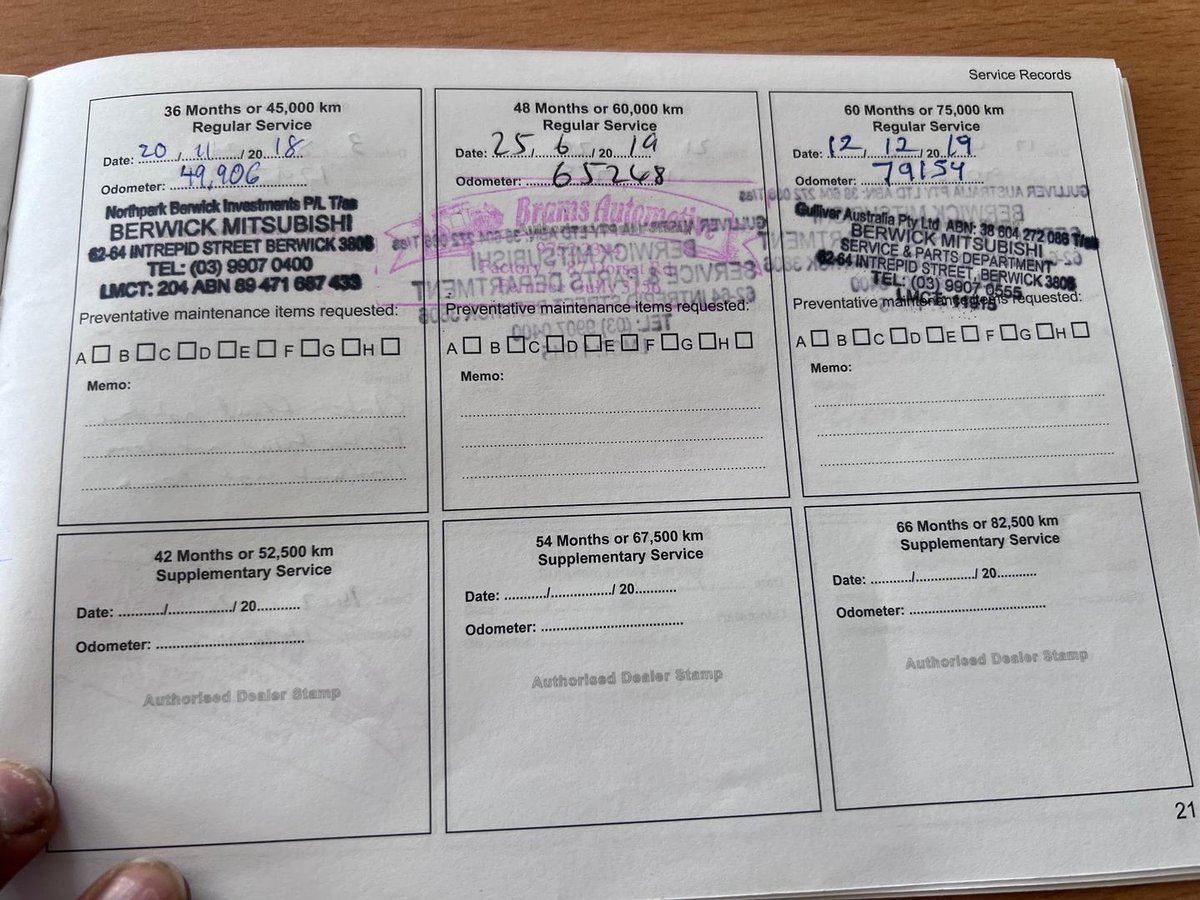 Service Records
36 Months or 45,000 km
Regular Service
Date: 20 / 11 / 20 18
Odometer: 49,906
Northpark Berwick Investments P/L T/as
BERWICK MITSUBISHI
62-64 INTREPID STREET BERWICK 3806
TEL: (03) 9907 0400
LMCT: 204 ABN 69 471 667 433
Preventative maintenance items requested:
A B C D E F G H
Memo:
48 Months or 60,000 km
Regular Service
Date: 25, 6 / 20 19
Odometer: 65248
Brams Automotive
Preventative maintenance items requested:
A B C D E F G H
Memo:
60 Months or 75,000 km
Regular Service
Date: 12 / 12 / 20 19
Odometer: 79154
Gulliver Australia Pty Ltd ABN: 38 604 272 086 T/as
BERWICK MITSUBISHI
SERVICE & PARTS DEPARTMENT
62-64 INTREPID STREET, BERWICK 3806
TEL: (03) 9907 0555
Preventative maintenance items requested:
A B C D E F G H
Memo:
42 Months or 52,500 km
Supplementary Service
Date: ........../................/ 20..........
Odometer: ...................................
Authorised Dealer Stamp
54 Months or 67,500 km
Supplementary Service
Date: ........../................/ 20..........
Odometer: ...................................
Authorised Dealer Stamp
66 Months or 82,500 km
Supplementary Service
Date: ........../................/ 20..........
Odometer: ...................................
Authorised Dealer Stamp
21